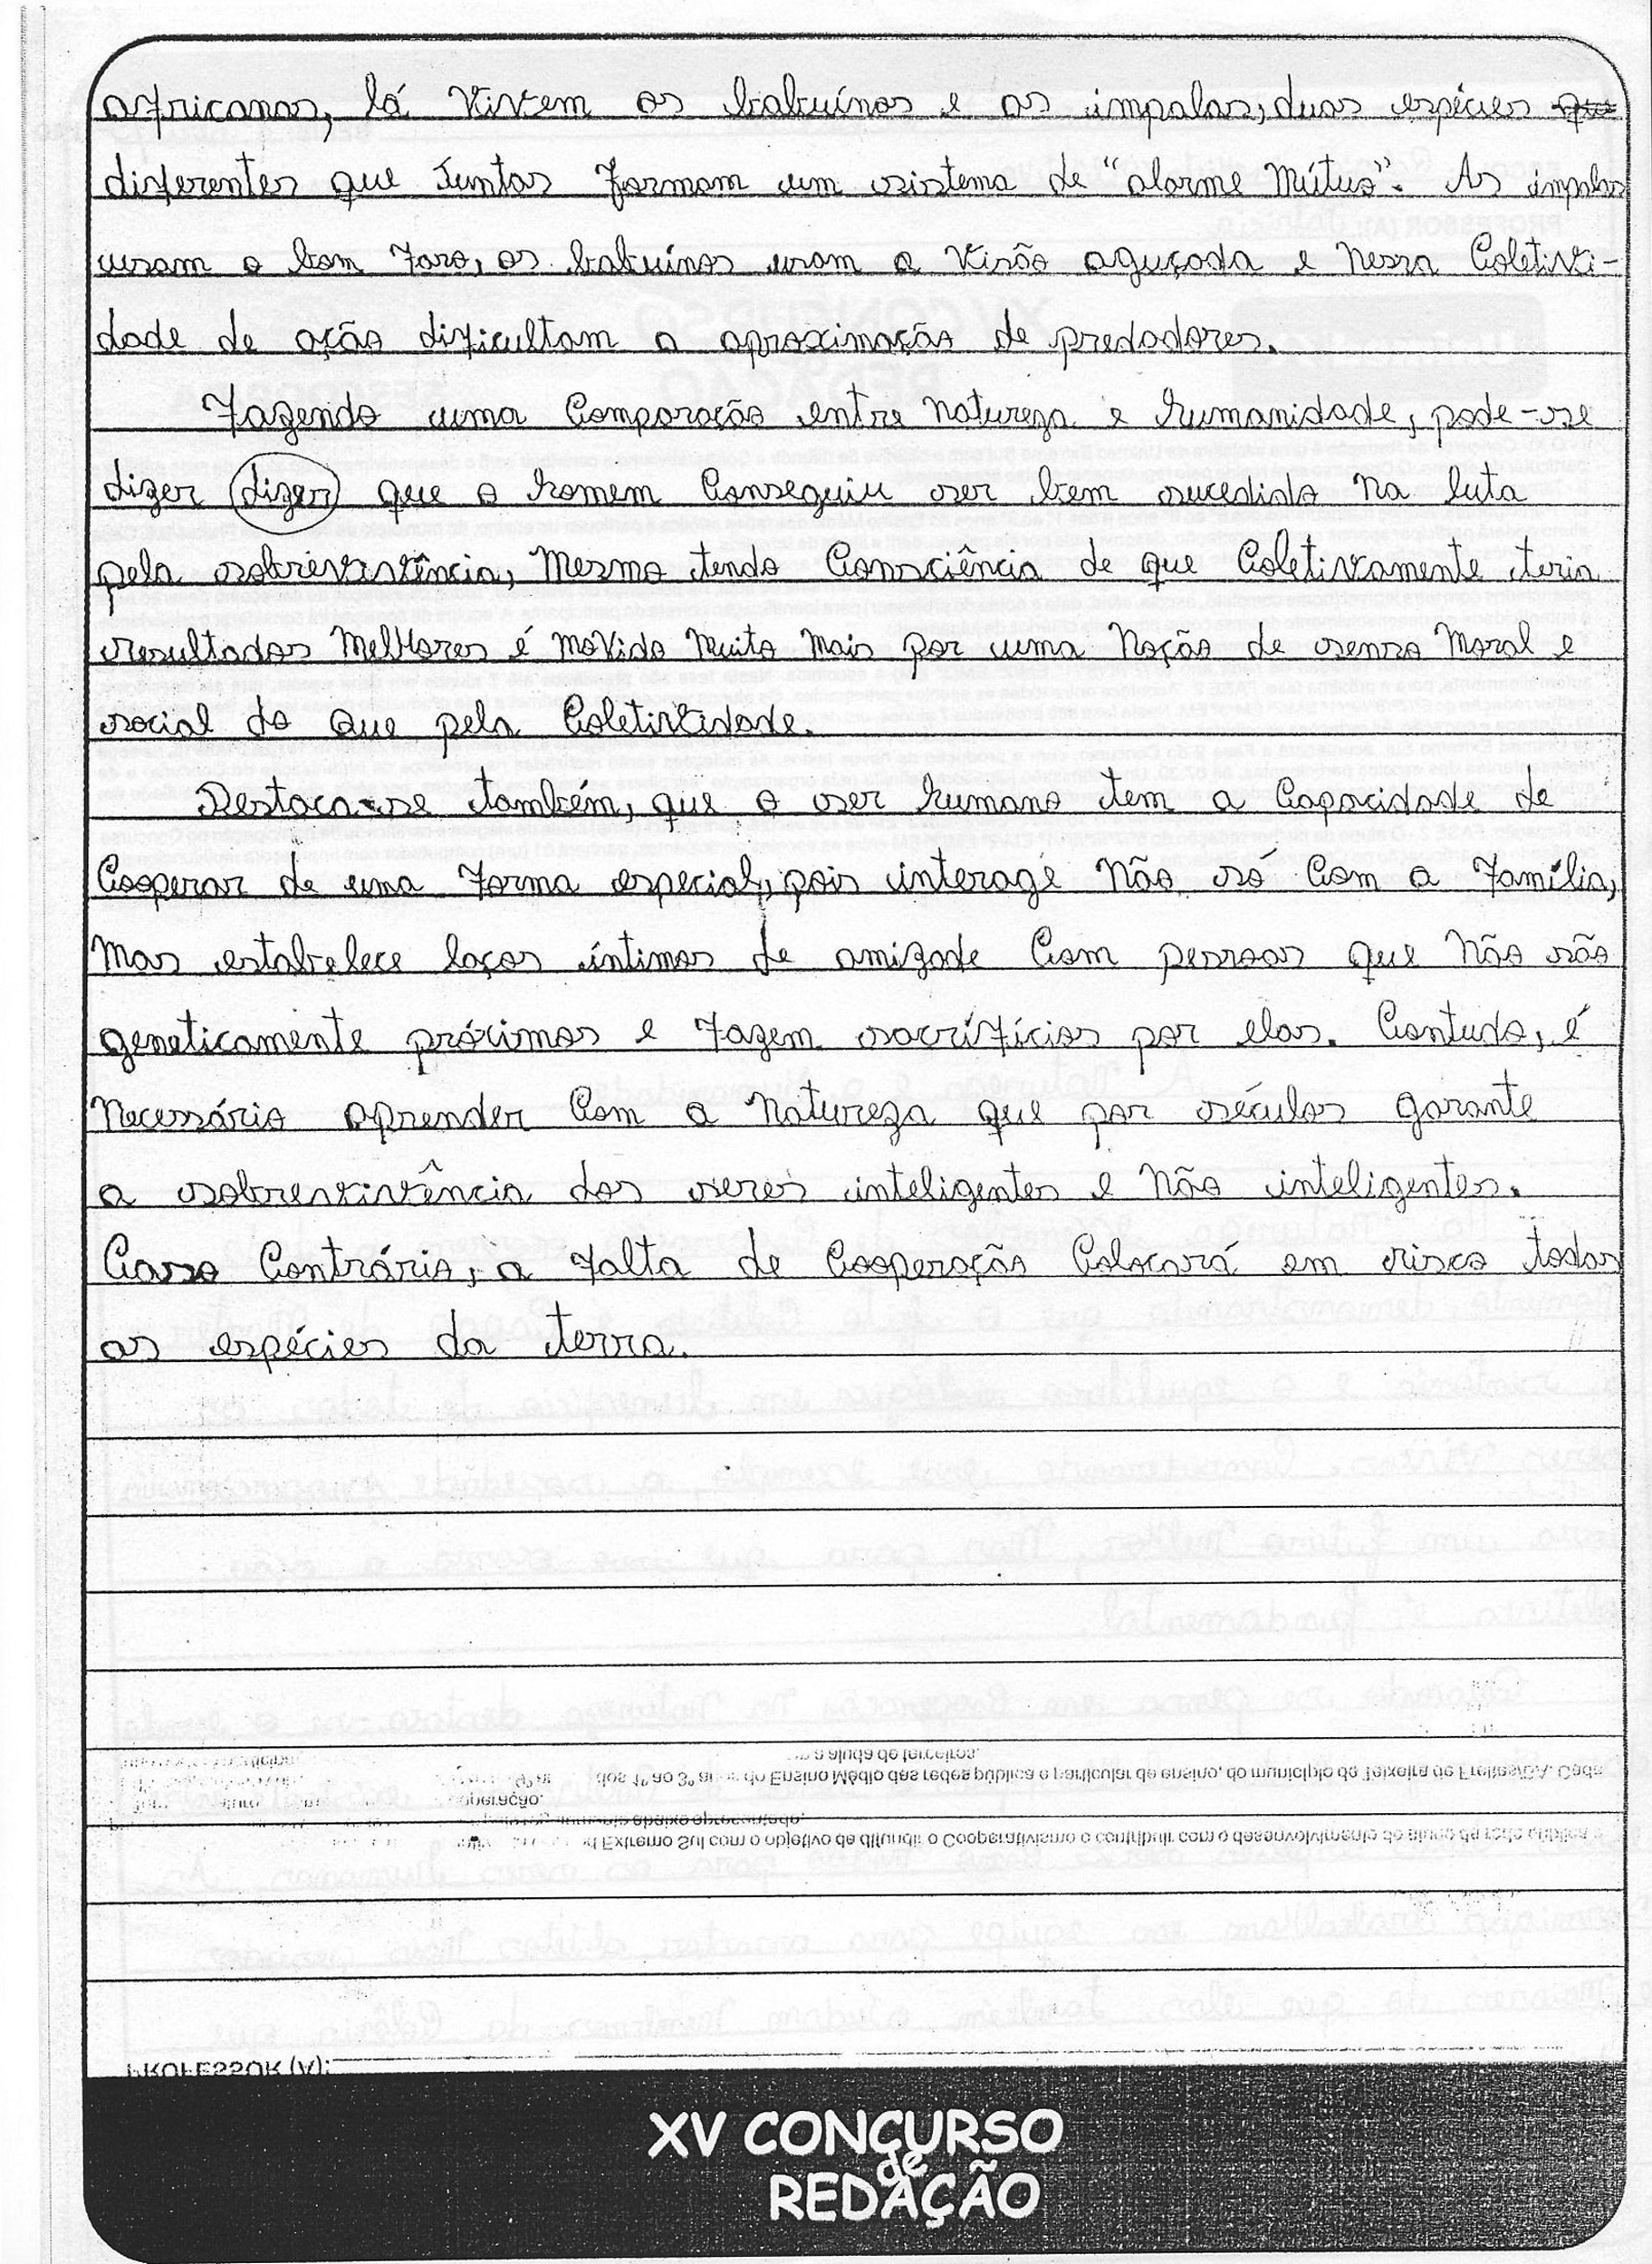 africanas, lá vivem os babuínos e as impalas, duas espécies que
diferentes que juntas formam um sistema de "alarme mútuo". As impalas
usam o bom faro, os babuínos usam a visão aguçada e nessa coletivi-
dade de ação dificultam a aproximação de predadores.
Fazendo uma comparação entre natureza e humanidade, pode-se
dizer dizer que o homem conseguiu ser bem sucedido na luta
pela sobrevivência, mesmo tendo consciência de que coletivamente teria
resultados melhores é movido muito mais por uma noção de senso moral e
social do que pela coletividade.
Destaca-se também, que o ser humano tem a capacidade de
cooperar de uma forma especial, pois interage não só com a família,
mas estabelece laços íntimos de amizade com pessoas que não são
geneticamente próximas e fazem sacrifícios por elas. Contudo, é
necessário aprender com a natureza que por séculos garante
a sobrevivência dos seres inteligentes e não inteligentes.
Caso contrário, a falta de cooperação colocará em risco todas
as espécies da terra.
PROFESSOR (A):
XV CONCURSO
de
REDAÇÃO